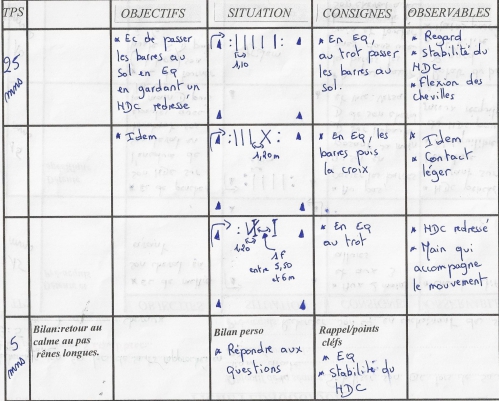 TPS
OBJECTIFS
SITUATION
CONSIGNES
OBSERVABLES
25
mns
* Ec de passer
les barres au
Sol en EQ
en gardant un
HDC redressé
1,10
* En EQ,
au trot passer
les barres au
sol.
* Regard
* Stabilité du
HDC
* Flexion des
chevilles
* Idem
1,20m
* En EQ, les
barres puis
la croix
* Idem
* Contact
léger
1,20
1f
entre 5,50
et 6m
* En EQ
au trot
* HDC redressé
* Main qui
accompagne
le mouvement
5
mns
Bilan:retour au
calme au pas
rênes longues.
Bilan perso
* Répondre aux
questions
Rappel/points
cléfs
* EQ
* Stabilité du
HDC